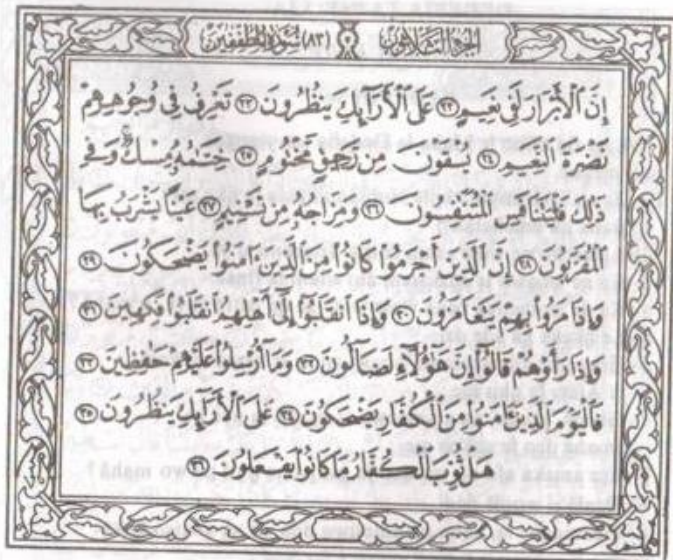 الجزء الثلاثون (٨٣) سورة المطففين
إِنَّ ٱلْأَبْرَارَ لَفِى نَعِيمٍ ٢٢ عَلَى ٱلْأَرَآئِكِ يَنظُرُونَ ٢٣ تَعْرِفُ فِى وُجُوهِهِمْ
نَضْرَةَ ٱلنَّعِيمِ ٢٤ يُسْقَوْنَ مِن رَّحِيقٍ مَّخْتُومٍ ٢٥ خِتَٰمُهُۥ مِسْكٌ ۚ وَفِى
ذَٰلِكَ فَلْيَتَنَافَسِ ٱلْمُتَنَٰفِسُونَ ٢٦ وَمِزَاجُهُۥ مِن تَسْنِيمٍ ٢٧ عَيْنًا يَشْرَبُ بِهَا
ٱلْمُقَرَّبُونَ ٢٨ إِنَّ ٱلَّذِينَ أَجْرَمُوا۟ كَانُوا۟ مِنَ ٱلَّذِينَ ءَامَنُوا۟ يَضْحَكُونَ ٢٩
وَإِذَا مَرُّوا۟ بِهِمْ يَتَغَامَزُونَ ٣٠ وَإِذَا ٱنقَلَبُوٓا۟ إِلَىٰٓ أَهْلِهِمُ ٱنقَلَبُوا۟ فَكِهِينَ ٣١
وَإِذَا رَأَوْهُمْ قَالُوٓا۟ إِنَّ هَٰٓؤُلَآءِ لَضَآلُّونَ ٣٢ وَمَآ أُرْسِلُوا۟ عَلَيْهِمْ حَٰفِظِينَ ٣٣
فَٱلْيَوْمَ ٱلَّذِينَ ءَامَنُوا۟ مِنَ ٱلْكُفَّارِ يَضْحَكُونَ ٣٤ عَلَى ٱلْأَرَآئِكِ يَنظُرُونَ ٣٥
هَلْ ثُوِّبَ ٱلْكُفَّارُ مَا كَانُوا۟ يَفْعَلُونَ ٣٦